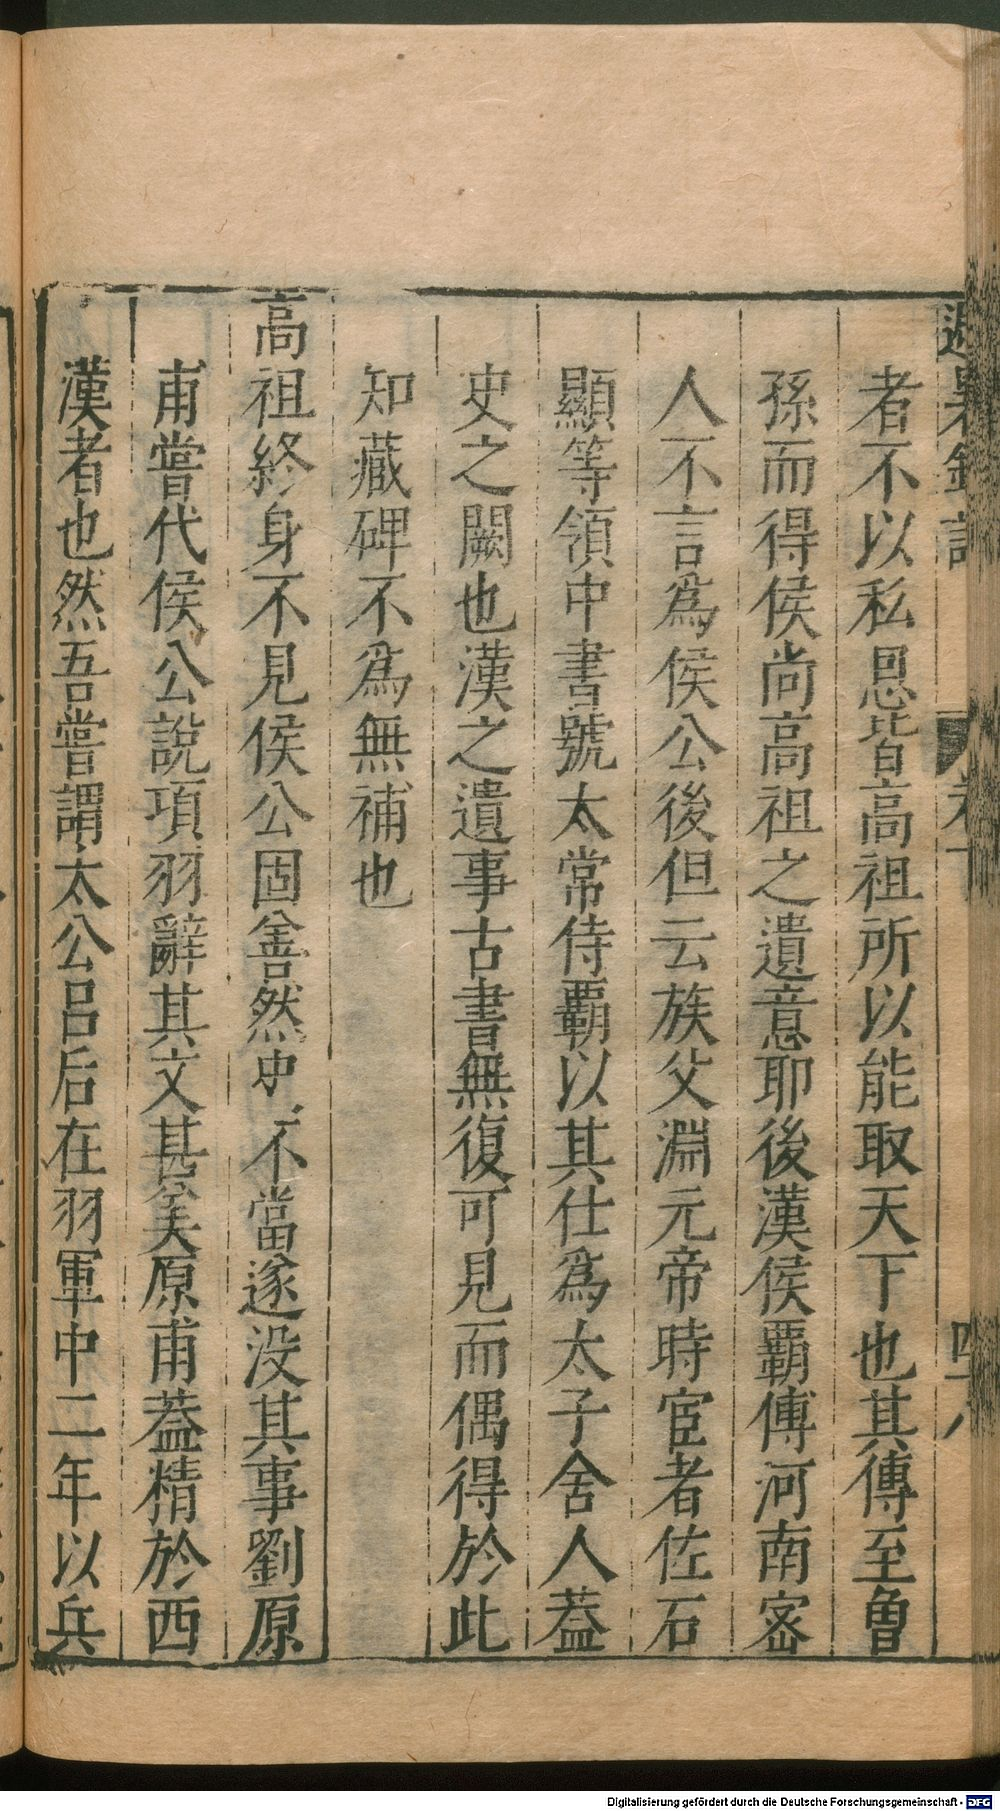 避暑錄話
卷下
四十八
者不以私恩皆高祖所以能取天下也其傳至魯
孫而得侯尚高祖之遺意耶後漢侯覇傳河南宻
人不言爲侯公後但云族父淵元帝時宦者佐石
顯等領中書號太常侍覇以其仕爲太子舍人葢
史之闕也漢之遺事古書無復可見而偶得於此
知藏碑不爲無補也
高祖終身不見侯公固善然史不當遂没其事劉原
甫嘗代侯公說項羽辭其文甚美原甫葢精於西
漢者也然吾嘗謂太公吕后在羽軍中二年以兵
Digitalisierung gefördert durch die Deutsche Forschungsgemeinschaft - DFG